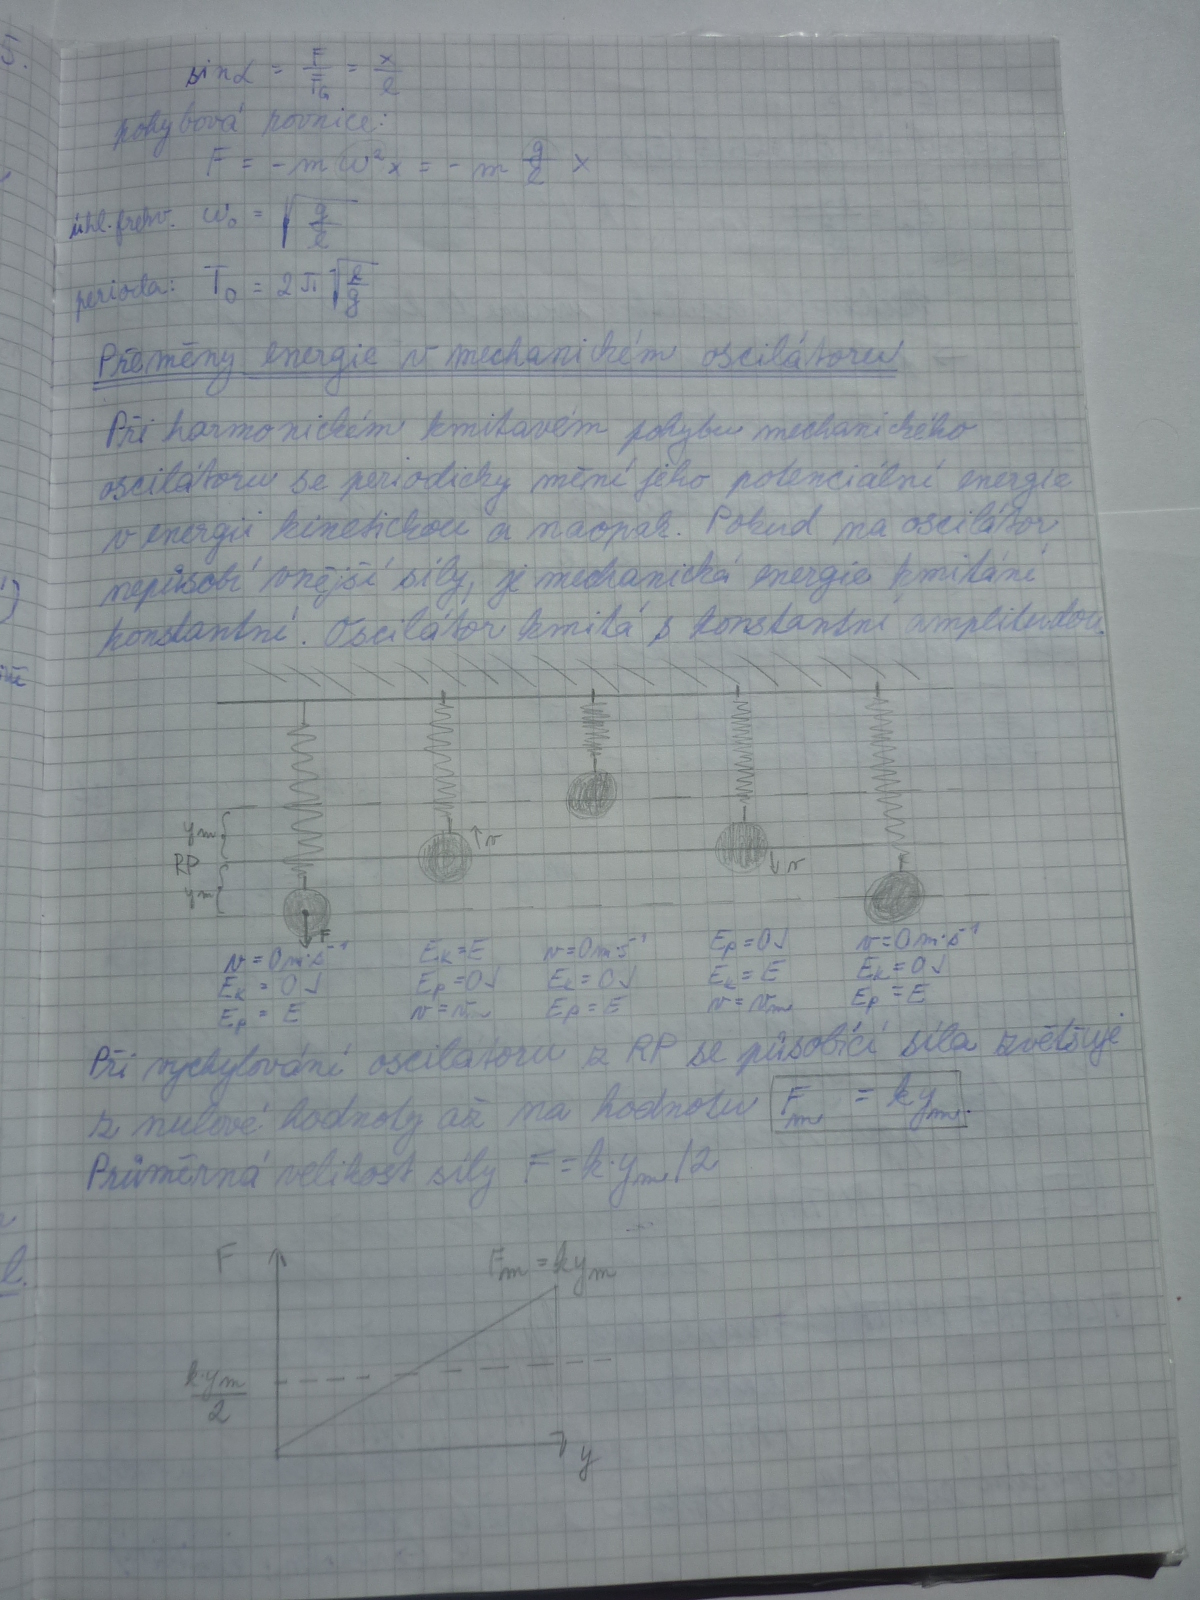 sin α = F/F_G = x/l
pohybová rovnice:
F = -m ω²x = -m g/l x
úhl. frekv. ω₀ = √(g/l)
perioda: T₀ = 2π√(l/g)
Přeměny energie v mechanickém oscilátoru
Při harmonickém kmitavém pohybu mechanického
oscilátoru se periodicky mění jeho potenciální energie
v energii kinetickou a naopak. Pokud na oscilátor
nepůsobí vnější síly, je mechanická energie kmitání
konstantní. Oscilátor kmitá s konstantní amplitudou.
y_m
v
RP
v
y_m
F
v = 0 m·s⁻¹ E_K = E v = 0 m·s⁻¹ E_P = 0 J v = 0 m·s⁻¹
E_K = 0 J E_P = 0 J E_K = 0 J E_K = E E_K = 0 J
E_P = E v = v_m E_P = E v = v_m E_P = E
Při vychylování oscilátoru z RP se působící síla zvětšuje
z nulové hodnoty až na hodnotu F_m = ky_m.
Průměrná velikost síly F = k·y_m/2
F
F_m = ky_m
k·y_m/2
y